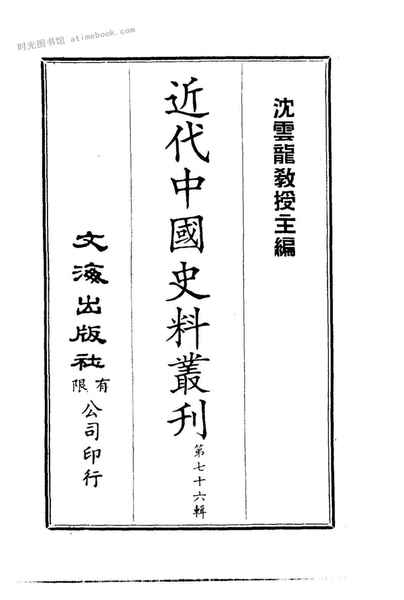 时光图书馆 atimebook.com
沈雲龍教授主編
近代中國史料叢刊
第七十六輯
文海出版社
有限
公司印行